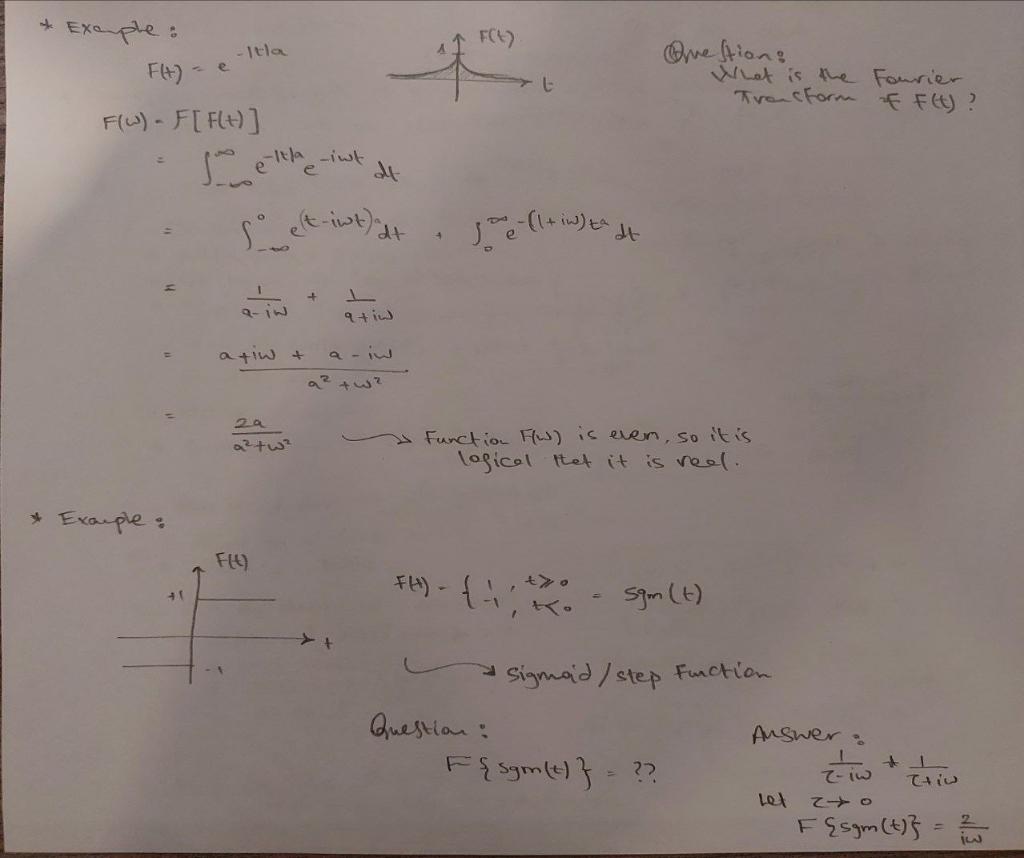 * Example :
F(t) = e^{-|t|a}
1 F(t)
t
Question:
What is the Fourier
Transform of F(t) ?
F(ω) = F[F(t)]
= ∫_{-∞}^{∞} e^{-|t|a} e^{-iωt} dt
= ∫_{-∞}^{0} e^{(t-iωt)a} dt + ∫_{0}^{∞} e^{-(1+iω)ta} dt
= 1/(a-iω) + 1/(a+iω)
= (a+iω + a-iω)/(a²+ω²)
= 2a/(a²+ω²) → Function F(ω) is even, so it is
logical that it is real.
* Example :
F(t)
+1
t
-1
F(t) = { 1 , t≥0
-1 , t<0 = sgm(t)
→ sigmoid/step Function
Question :
F{sgm(t)} = ??
Answer :
1/(τ-iω) + 1/(τ+iω)
Let τ→0
F{sgm(t)} = 2/(iω)